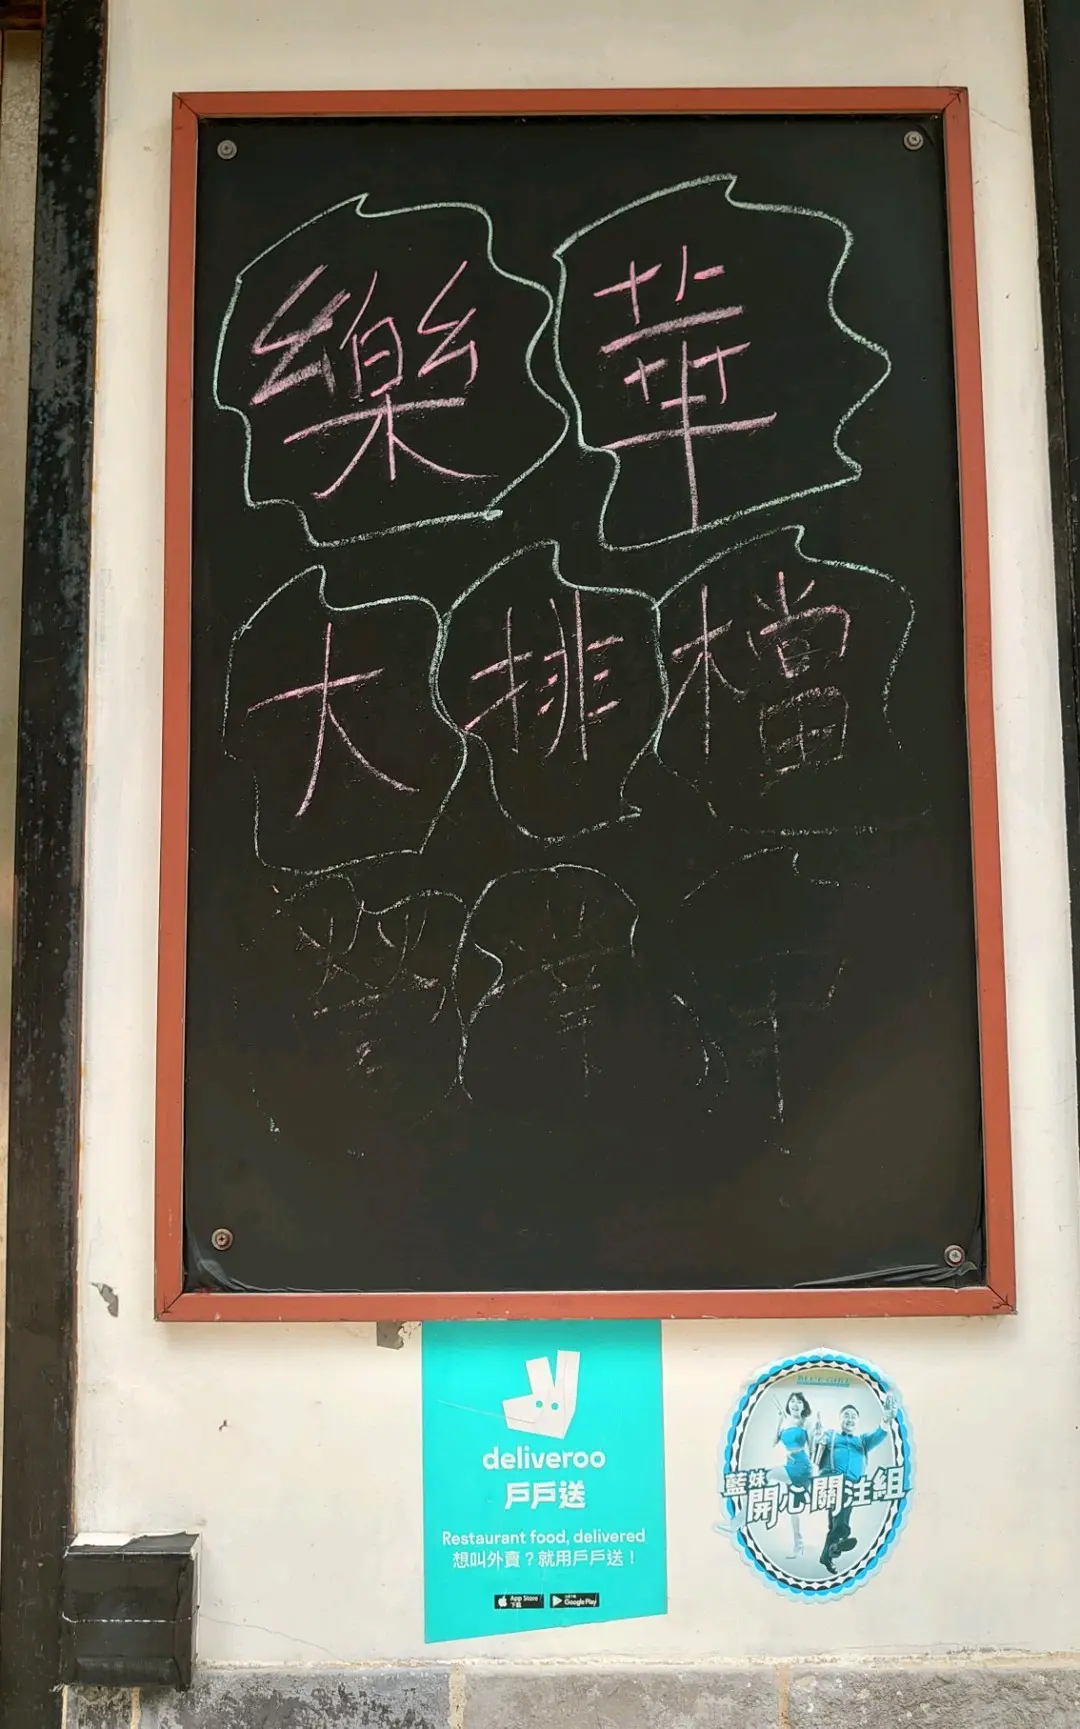 樂華
大排檔
營業中
deliveroo
戶戶送
Restaurant food, delivered
想叫外賣？就用戶戶送！
App Store 下載
Google Play
BLUE GIRL
藍妹
開心關注組